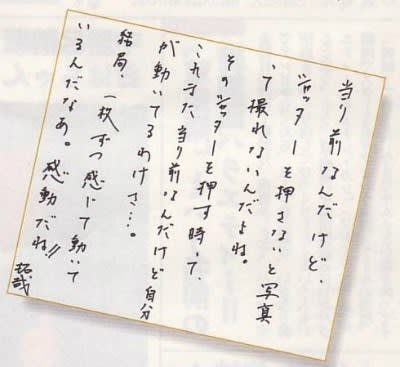 当り前なんだけど、
シャッターを押さないと写真
って撮れないんだよね。
そのシャッターを押す時って、
これまた当り前なんだけど自分
が動いてるわけさ…。
結局、一枚ずつ感じて動いて
いるんだなあ。感動だね!!
拓哉